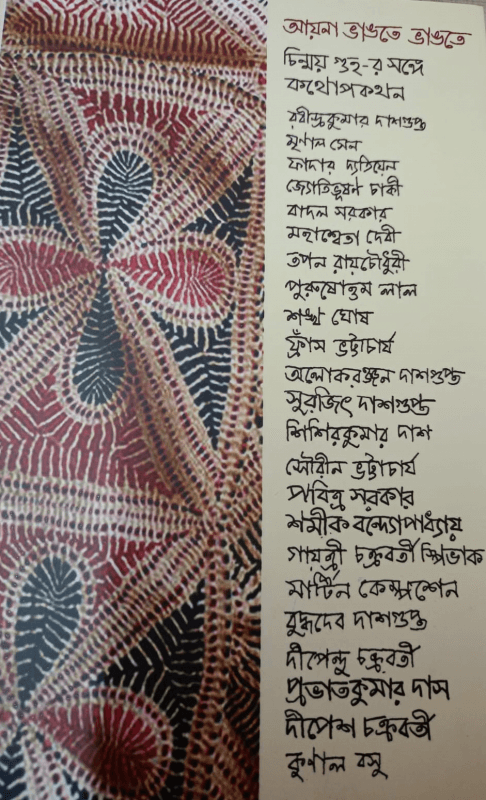 আয়না ভাঙতে ভাঙতে
চিন্ময় গুহ-র সঙ্গে
কথোপকথন
রবীন্দ্রকুমার দাশগুপ্ত
মৃণাল সেন
ফাদার দ্যতিয়েন
জ্যোতিভূষণ চাকী
বাদল সরকার
মহাশ্বেতা দেবী
তপন রায়চৌধুরী
পুরুষোত্তম লাল
শঙ্খ ঘোষ
ফ্রাঁস ভট্টাচার্য
অলোকরঞ্জন দাশগুপ্ত
সুরজিৎ দাশগুপ্ত
শিশিরকুমার দাশ
সৌরীন ভট্টাচার্য
পবিত্র সরকার
শমীক বন্দ্যোপাধ্যায়
গায়ত্রী চক্রবর্তী স্পিভাক
মার্টিন কেম্পশেন
বুদ্ধদেব দাশগুপ্ত
দীপেন্দু চক্রবর্তী
প্রভাতকুমার দাস
দীপেশ চক্রবর্তী
কুণাল বসু